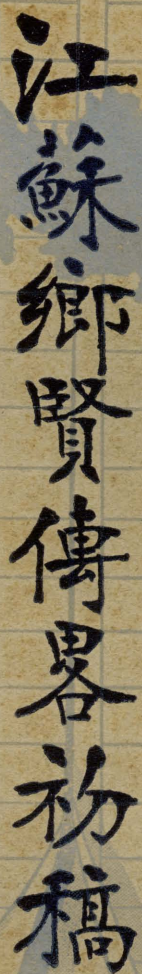 江蘇鄉賢傳畧初稿